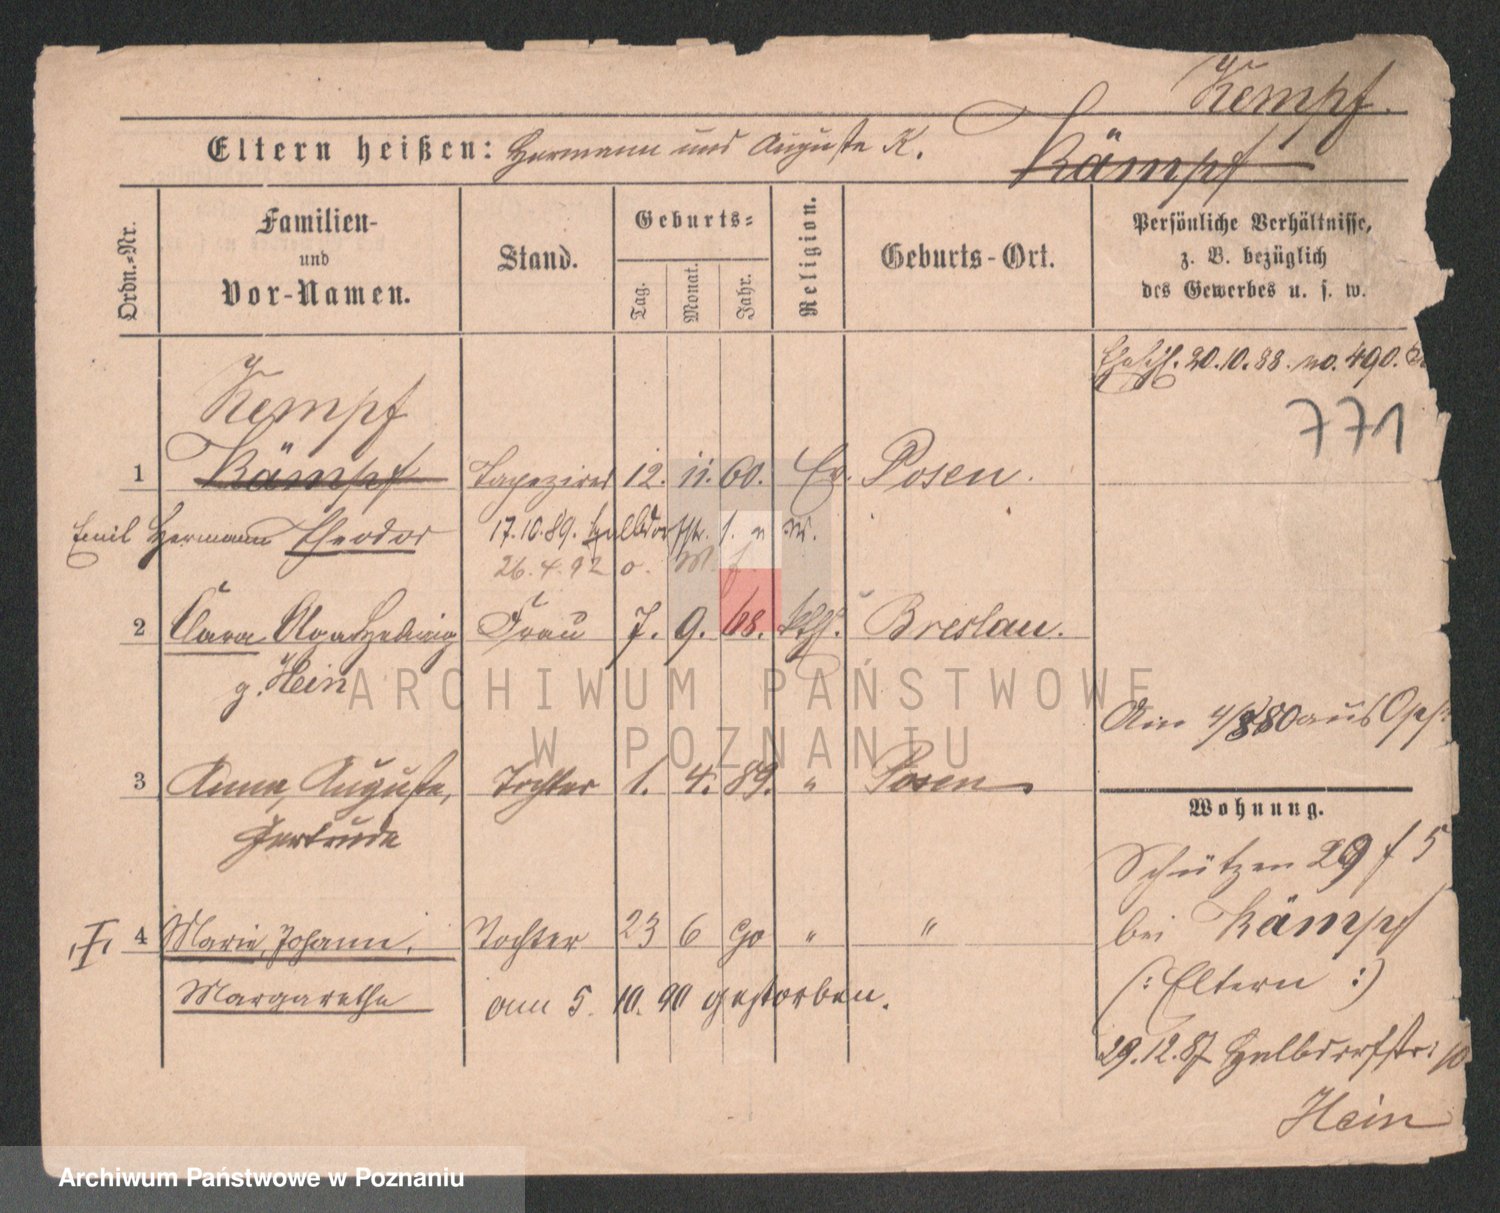 Kempf.
Eltern heißen: Hermann und Auguste K. Kämpf
Ordn.-Nr.
Familien-
und
Vor-Namen.
Stand.
Geburts-
Tag.
Monat.
Jahr.
Religion.
Geburts-Ort.
Persönliche Verhältnisse,
z. B. bezüglich
des Gewerbes u. s. w.
20.10.88. no. 490.
771
Kempf
1 Kämpf Tapezirer 12. 11. 60. Ev. Posen.
Emil Hermann Theodor 17.10.89. Halbdorfstr.
26.4.92
2 Clara Hedwig Frau 7. 9. 68. kth. Breslau.
g. Hein
Am aus
3 Anna, Auguste, Tochter 1. 4. 89. " Posen
Gertrude
Wohnung.
Schützen 29 f 5
bei Kämpf
(: Eltern :)
29.12.87 Halbdorfstr. 10
Hein
4 Marie, Johann. Tochter 23 6 90 " "
Margarethe am 5. 10. 90 gestorben.
ARCHIWUM PAŃSTWOWE
W POZNANIU
Archiwum Państwowe w Poznaniu